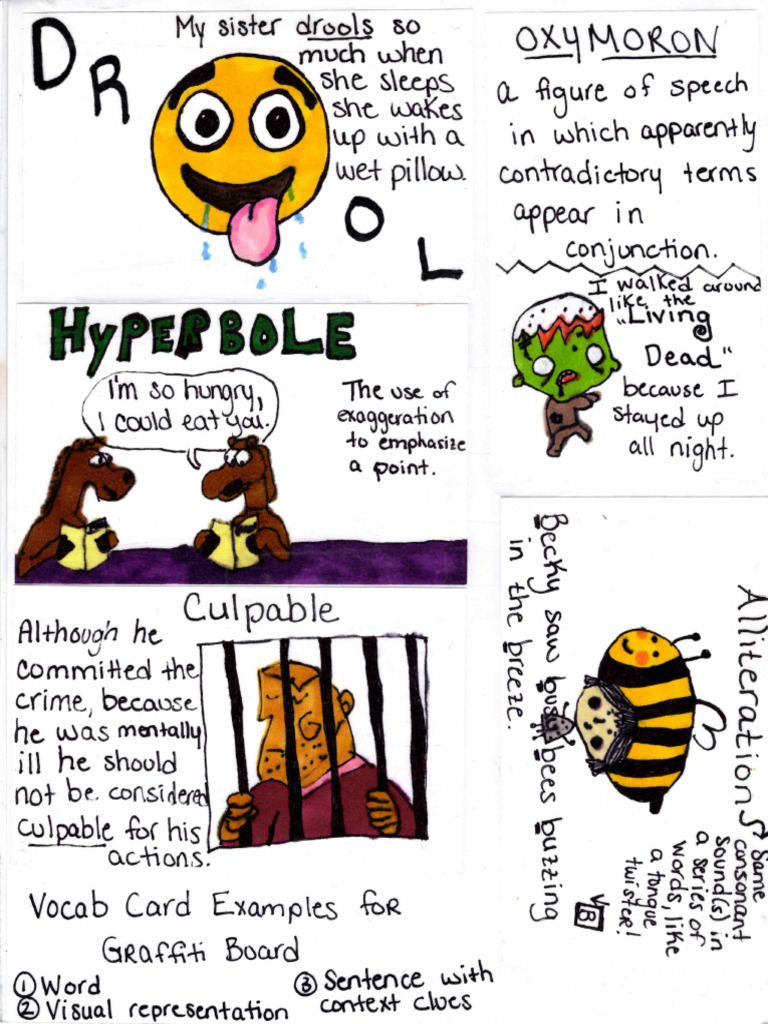 DROOL
My sister drools so
much when
she sleeps
she wakes
up with a
wet pillow.
OXYMORON
a figure of speech
in which apparently
contradictory terms
appear in
conjunction.
I walked around
like the
"Living
Dead"
because I
stayed up
all night.
HYPERBOLE
I'm so hungry,
I could eat you.
The use of
exaggeration
to emphasize
a point.
Alliteration
Same
consonant
sound(s) in
a series of
words, like
a tongue
twister!
Becky saw busy bees buzzing
in the breeze.
VB
Culpable
Although he
committed the
crime, because
he was mentally
ill he should
not be considered
culpable for his
actions.
Vocab Card Examples for
Graffiti Board
① Word
② Visual representation
③ Sentence with
context clues